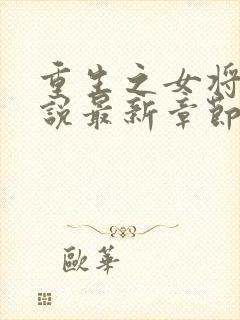 重生之女將
說最新章節
歐華